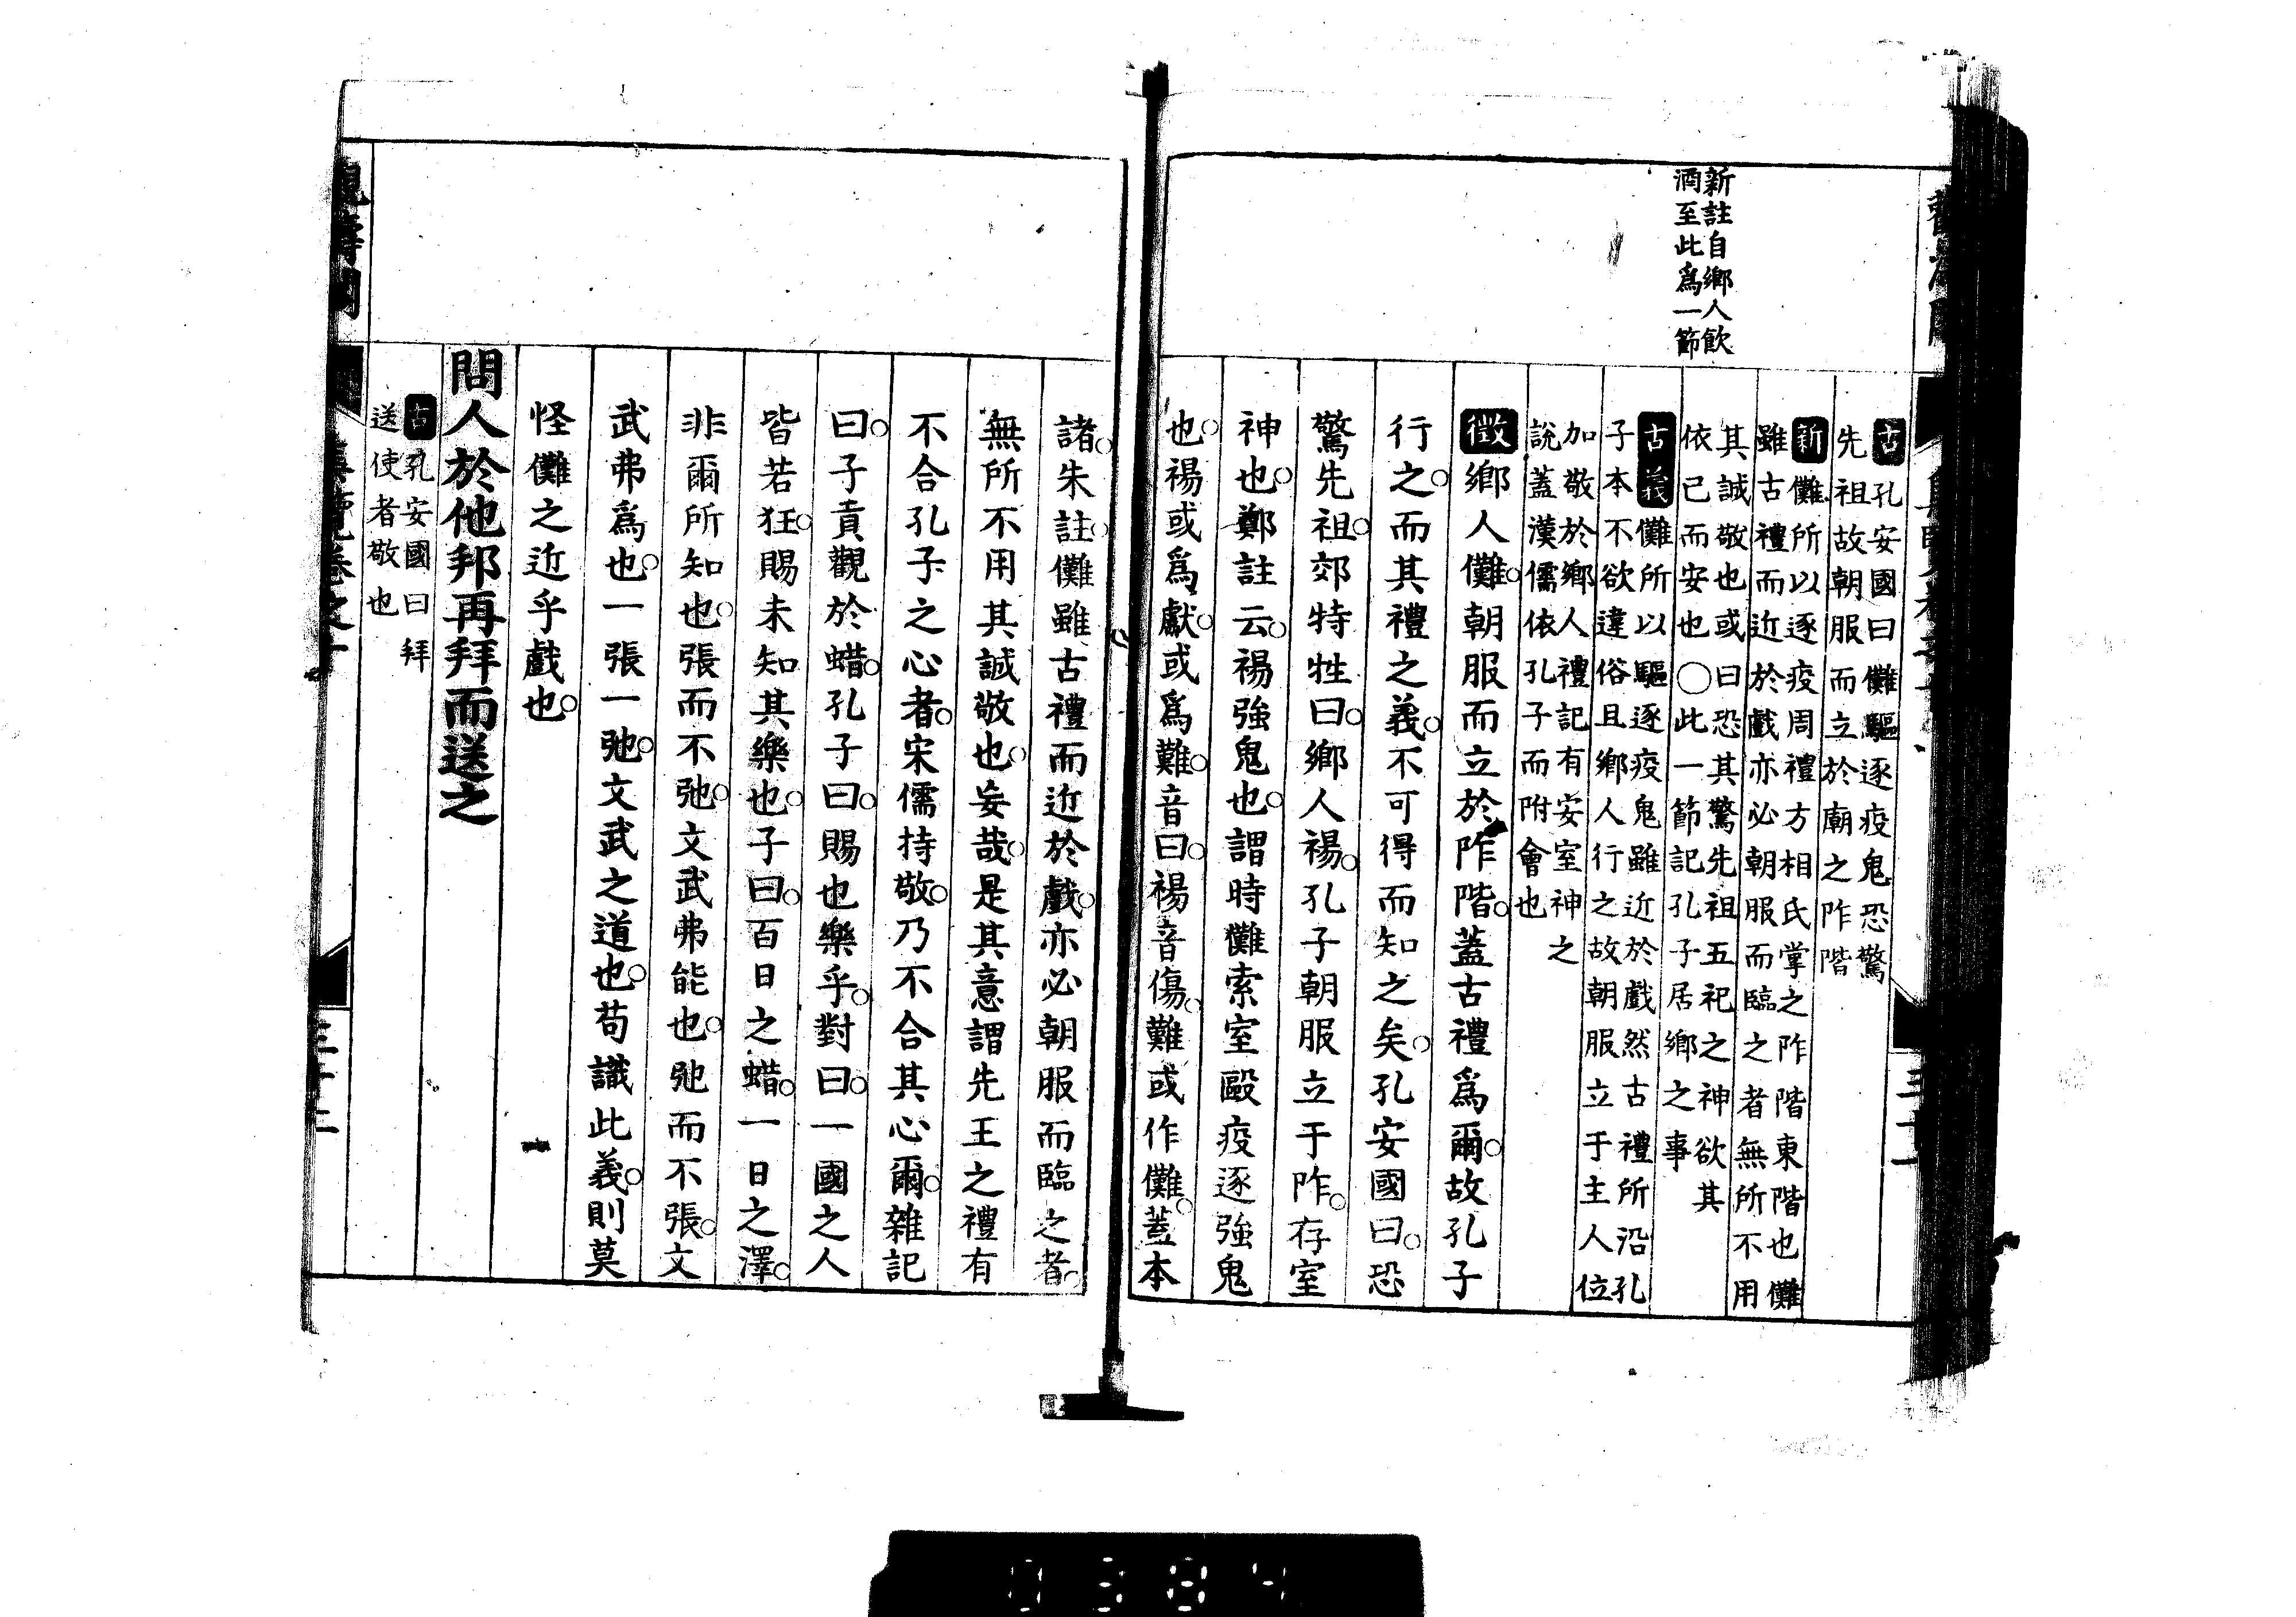 新註自鄉人飮
酒至此爲一節
古孔安國曰儺驅逐疫鬼恐驚
先祖故朝服而立於廟之阼階
新儺所以逐疫周禮方相氏掌之阼階東階也儺
雖古禮而近於戲亦必朝服而臨之者無所不用
其誠敬也或曰恐其驚先祖五祀之神欲其
依己而安也〇此一節記孔子居鄉之事
古義儺所以驅逐疫鬼雖近於戲然古禮所沿孔
子本不欲違俗且鄉人行之故朝服立于主人位
加敬於鄉人禮記有安室神之
說蓋漢儒依孔子而附會也
徵鄉人儺。朝服而立於阼階。蓋古禮爲爾。故孔子
行之。而其禮之義。不可得而知之矣。孔安國曰。恐
驚先祖。郊特牲曰。鄉人禓。孔子朝服立于阼。存室
神也。鄭註云。禓強鬼也。謂時儺索室毆疫逐強鬼
也。禓或爲獻。或爲難。音曰。禓音傷。難或作儺。蓋本
諸。朱註。儺雖古禮而近於戲。亦必朝服而臨之者。
無所不用其誠敬也。妄哉。是其意謂先王之禮有
不合孔子之心者。宋儒持敬。乃不合其心爾。雜記
曰。子貢觀於蜡。孔子曰。賜也樂乎。對曰。一國之人
皆若狂。賜未知其樂也。子曰。百日之蜡。一日之澤。
非爾所知也。張而不弛。文武弗能也。弛而不張。文
武弗爲也。一張一弛。文武之道也。苟識此義。則莫
怪儺之近乎戲也。
問人於他邦再拜而送之
古孔安國曰拜
送使者敬也
三十二